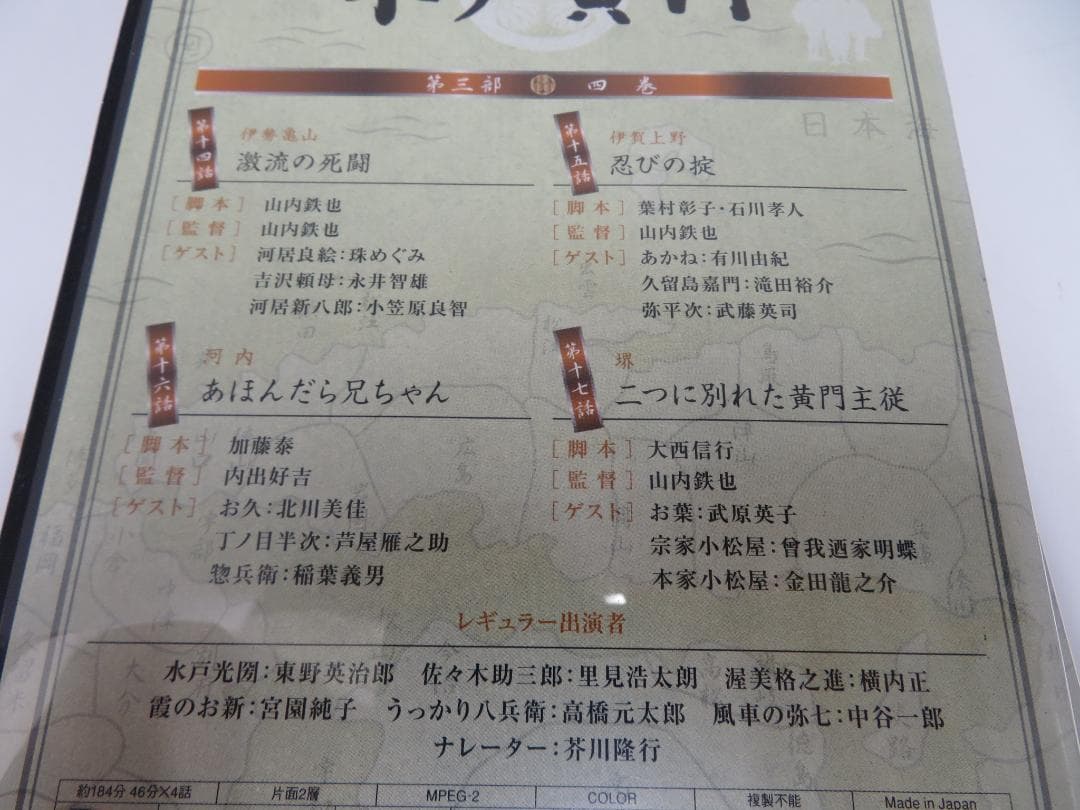 第三部 四巻
第十四話
伊勢亀山
激流の死闘
［脚本］ 山内鉄也
［監督］ 山内鉄也
［ゲスト］ 河居良絵：珠めぐみ
吉沢頼母：永井智雄
河居新八郎：小笠原良智
第十五話
伊賀上野
忍びの掟
［脚本］ 葉村彰子・石川孝人
［監督］ 山内鉄也
［ゲスト］ あかね：有川由紀
久留島嘉門：滝田裕介
弥平次：武藤英司
第十六話
河内
あほんだら兄ちゃん
［脚本］ 加藤泰
［監督］ 内出好吉
［ゲスト］ お久：北川美佳
丁ノ目半次：芦屋雁之助
惣兵衛：稲葉義男
第十七話
堺
二つに別れた黄門主従
［脚本］ 大西信行
［監督］ 山内鉄也
［ゲスト］ お葉：武原英子
宗家小松屋：曾我廼家明蝶
本家小松屋：金田龍之介
レギュラー出演者
水戸光圀：東野英治郎 佐々木助三郎：里見浩太朗 渥美格之進：横内正
霞のお新：宮園純子 うっかり八兵衛：高橋元太郎 風車の弥七：中谷一郎
ナレーター：芥川隆行
約184分 46分×4話 片面2層 MPEG-2 COLOR 複製不能 Made in Japan